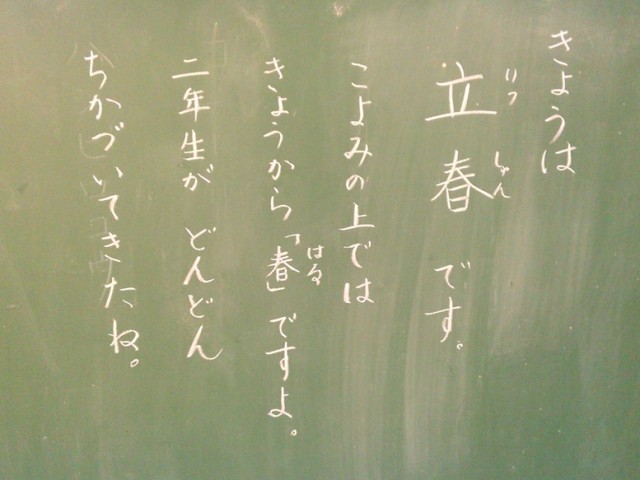 きょうは
立春です。
りっしゅん
こよみの上では
きょうから「春」ですよ。
はる
二年生が どんどん
ちかづいてきたね。